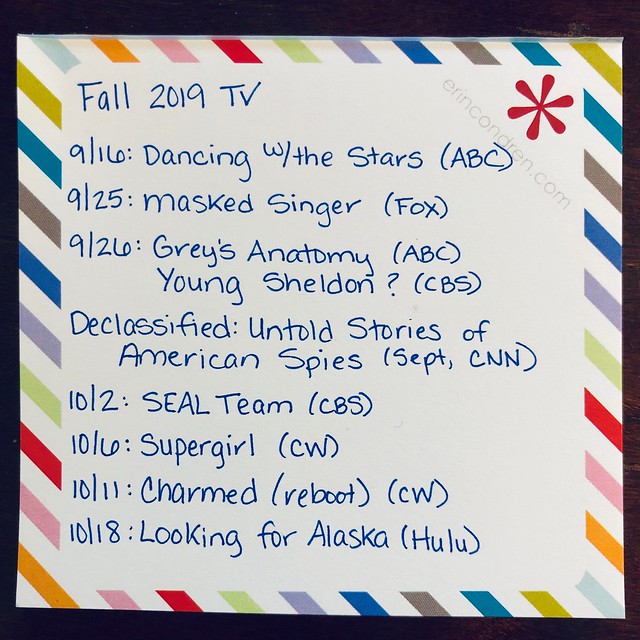 Fall 2019 TV
erincondren.com
9/16: Dancing w/the Stars (ABC)
9/25: Masked Singer (FOX)
9/26: Grey's Anatomy (ABC)
Young Sheldon? (CBS)
Declassified: Untold Stories of
American Spies (Sept, CNN)
10/2: SEAL Team (CBS)
10/6: Supergirl (CW)
10/11: Charmed (reboot) (CW)
10/18: Looking for Alaska (Hulu)